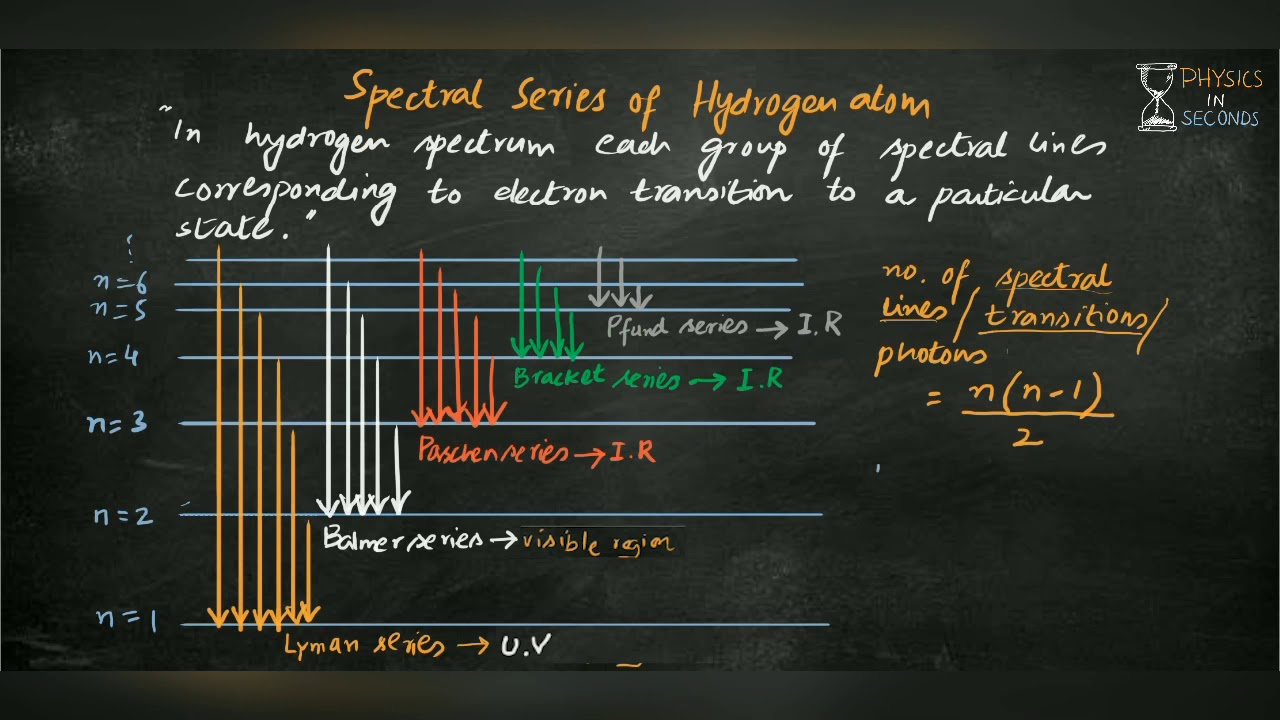 Spectral Series of Hydrogen atom
PHYSICS
IN
SECONDS
"In hydrogen spectrum each group of spectral lines
corresponding to electron transition to a particular
state."
n=6
n=5
n=4
n=3
n=2
n=1
Pfund series → I.R
Bracket series → I.R
Paschen series → I.R
Balmer series → visible region
Lyman series → U.V
no. of spectral
lines / transitions /
photons
= n(n-1)
2